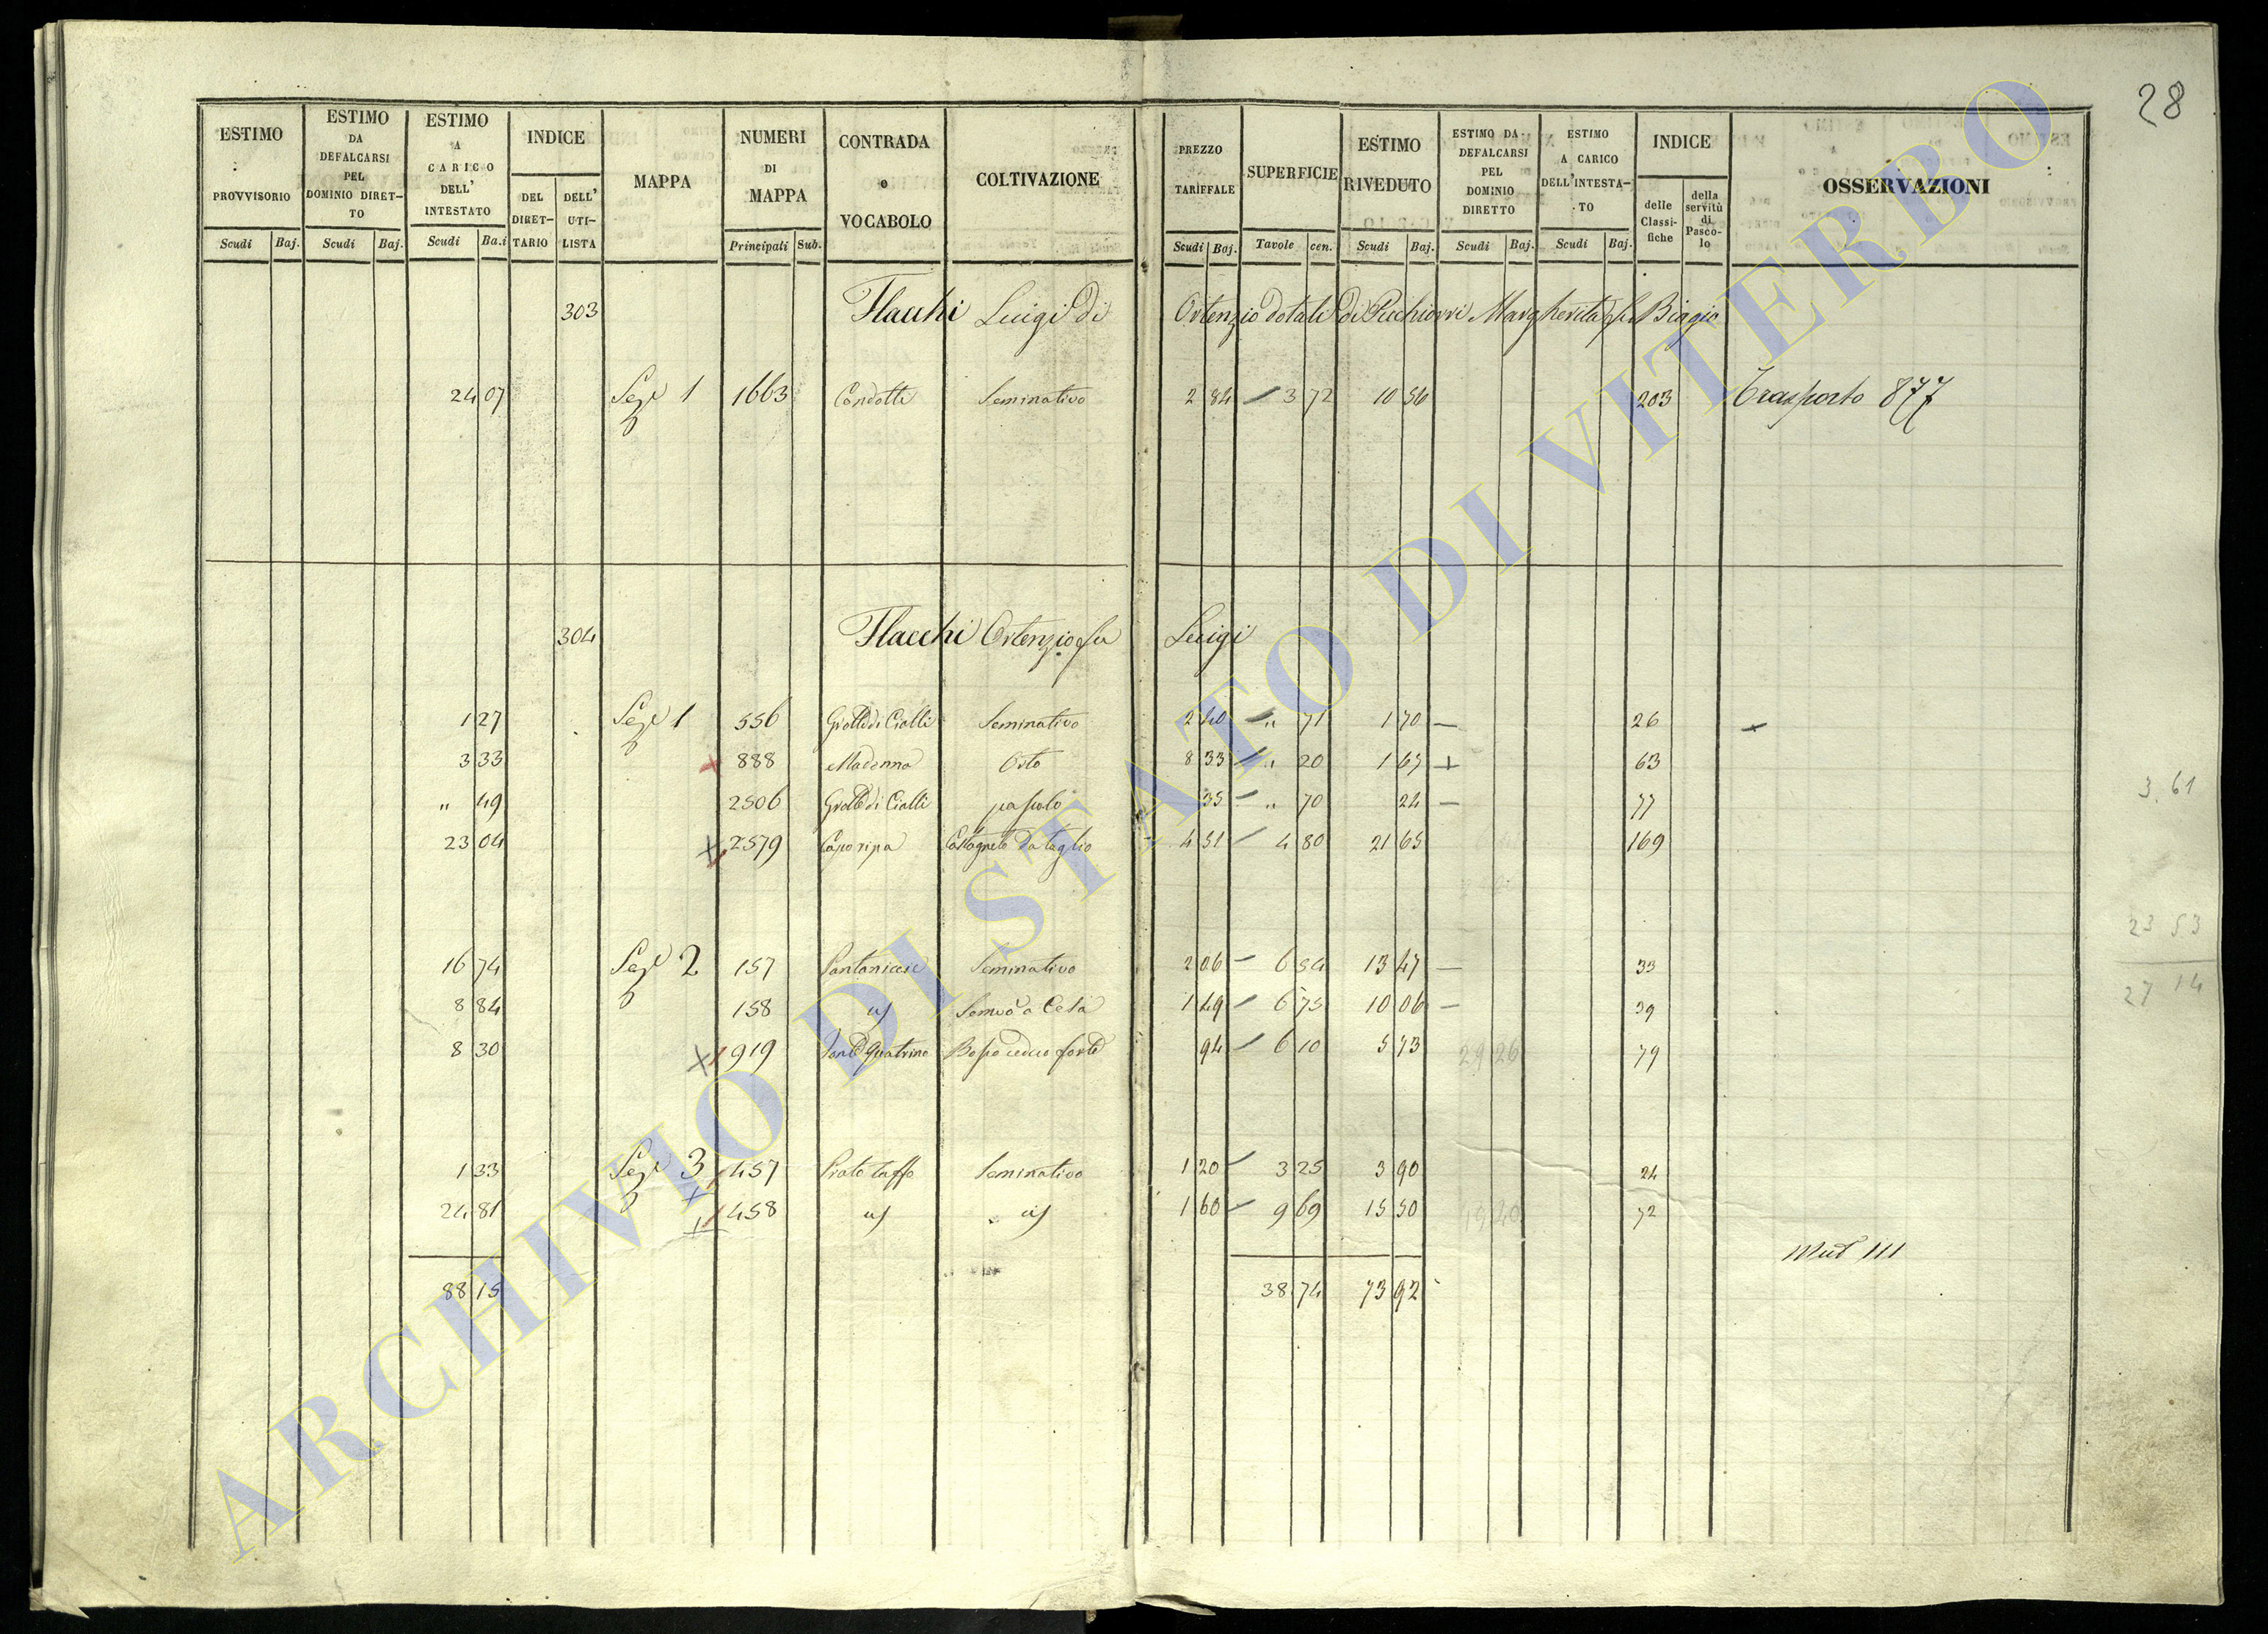 28
ESTIMO PROVVISORIO Scudi Baj.
ESTIMO DA DEFALCARSI PEL DOMINIO DIRETTO Scudi Baj.
ESTIMO A CARICO DELL' INTESTATO Scudi Ba.i
INDICE DEL DIRETTARIO DELL' UTILISTA
MAPPA
NUMERI DI MAPPA Principali Sub.
CONTRADA o VOCABOLO
COLTIVAZIONE
PREZZO TARIFFALE Scudi Baj.
SUPERFICIE Tavole cen.
ESTIMO RIVEDUTO Scudi Baj.
ESTIMO DA DEFALCARSI PEL DOMINIO DIRETTO Scudi Baj.
ESTIMO A CARICO DELL'INTESTATO Scudi Baj.
INDICE delle Classifiche della servitù di Pascolo
OSSERVAZIONI
303 Flacchi Luigi di Ortenzio dotali di Picchiorri Margherita fu Biagio
24 07 Sez.e 1 1663 Condotti Seminativo 2 84 3 72 10 56 203 Trasporto 877
304 Flacchi Ortenzio fu Luigi
1 27 Sez.e 1 556 Grotte di Cialli Seminativo 2 40 " 71 1 70 26
3 33 888 Madonna Orto 8 33 " 20 1 67 63
" 49 2506 Grotte di Cialli pascolo 35 " 70 24 77
23 04 2579 Caporipa Castagneto da taglio 4 51 4 80 21 65 169
16 74 Sez.e 2 157 Pantaniccie Seminativo 2 06 6 54 13 47 33
8 84 158 id Semivo a Cesa 1 49 6 75 10 06 39
8 30 919 Quatrino Bosco ceduo forte 94 6 10 5 73 29 26 79
1 33 Sez.e 3 457 Prato taffo Seminativo 1 20 3 25 3 90 24
24 81 458 id id 1 60 9 69 15 50 19 40 72
Mut 111
88 15 38 74 73 92
3.61
23 53
27 14
ARCHIVIO DI STATO DI VITERBO